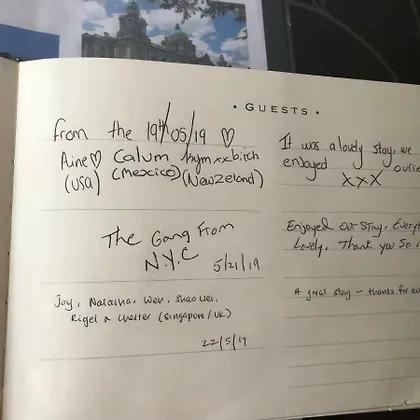 • GUESTS •
from the 19th/05/19 ♡
Aine♡ Calum
(USA) (Mexico) (NewZeland)
The Gang From
N.Y.C
5/21/19
Joy, Wei, Shao Wei,
Rigel & Walter (Singapore/UK)
22/5/19
It was a lovely stay, we
enjoyed
xxx
Enjoyed our stay, Everyt
Lovely, Thank you so
A great stay - thanks for